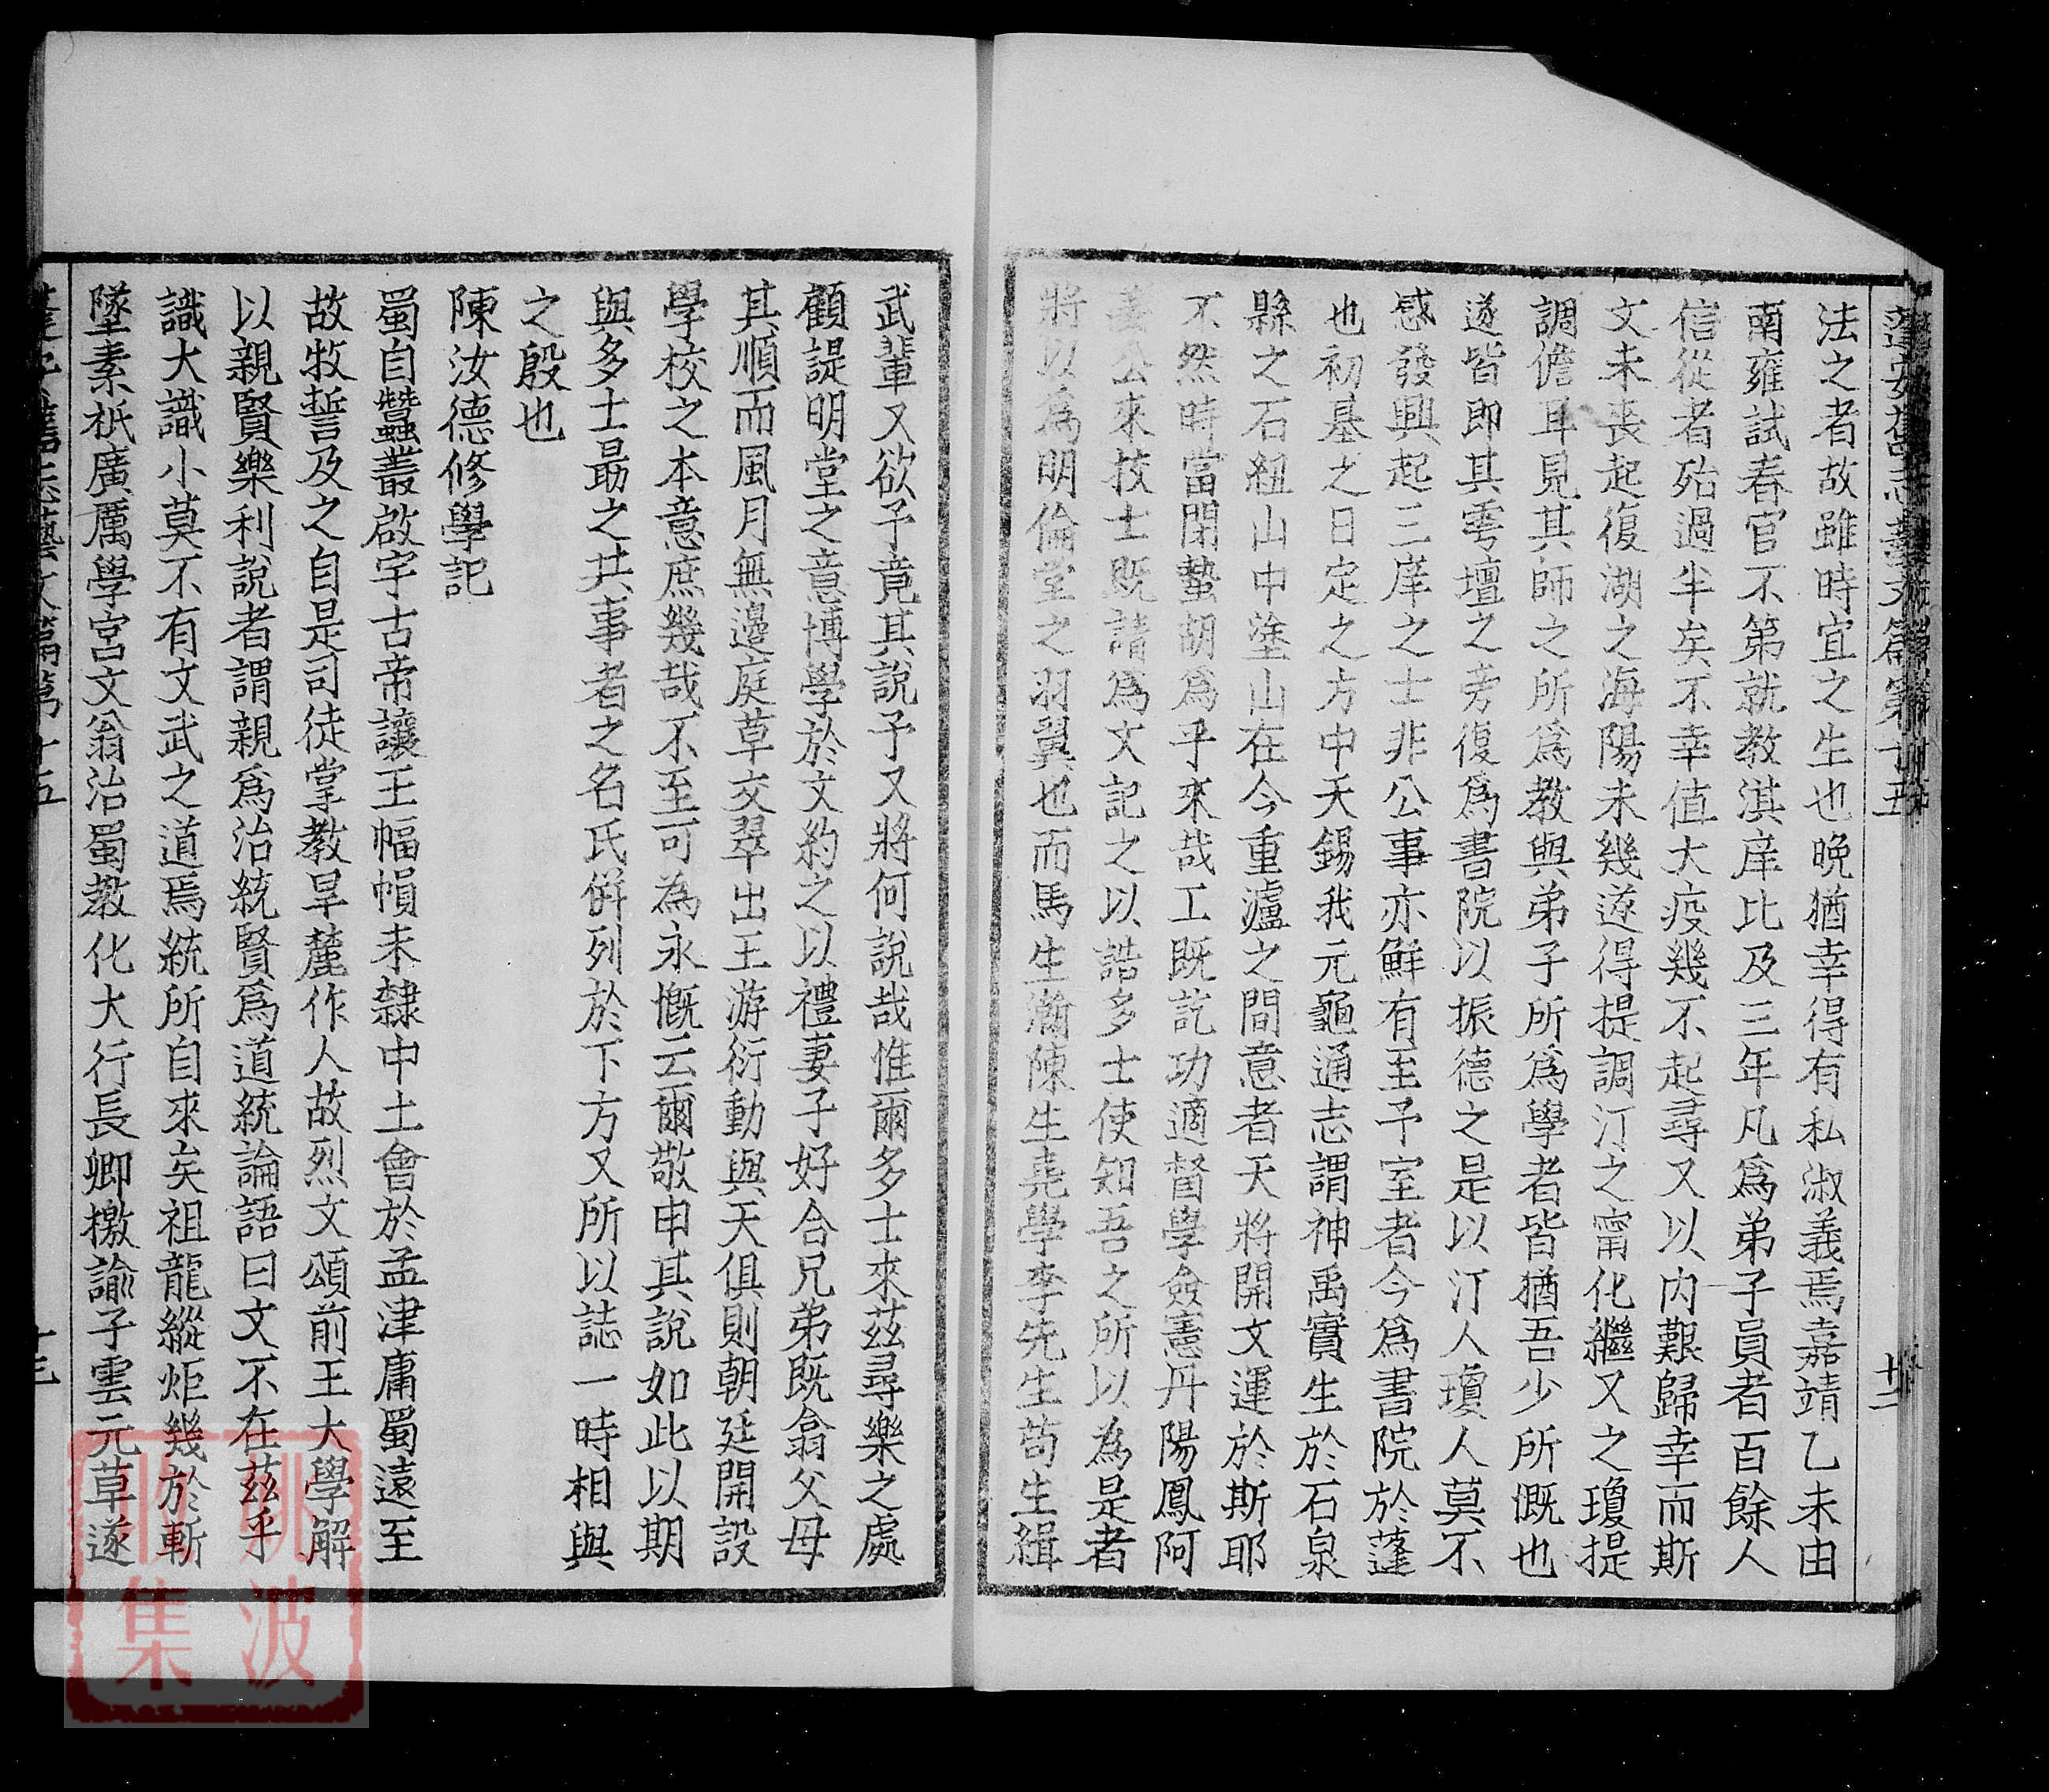 蓬安舊志藝文篇第十五
十二
法之者故雖時宜之生也晚猶幸得有私淑義焉嘉靖乙未由
南雍試春官不第就教淇庠比及三年凡爲弟子員者百餘人
信從者殆過半矣不幸值大疫幾不起尋又以内艱歸幸而斯
文未丧起復湖之海陽未幾遂得提調汀之甯化繼又之瓊提
調儋耳見其師之所爲教與弟子所爲學者皆猶吾少所溉也
遂皆即其雩壇之旁復爲書院以振德之是以汀人瓊人莫不
感發興起三庠之士非公事亦鮮有至予室者今爲書院於蓬
也初基之日定之方中天錫我元龜通志謂神禹實生於石泉
縣之石紐山中塗山在今重瀘之間意者天將開文運於斯耶
不然時當閉蟄胡爲乎來哉工既訖功適督學僉憲丹陽鳳阿
姜公來挍士既請爲文記之以誥多士使知吾之所以為是者
將以爲明倫堂之羽翼也而馬生瀚陳生堯學李先生苟生緝
武輩又欲予竟其說予又將何說哉惟爾多士來茲尋樂之處
顧諟明堂之意博學於文約之以禮妻子好合兄弟既翕父母
其順而風月無邊庭草交翠出王游衍動與天俱則朝廷開設
學校之本意庶幾哉不至可為永慨云爾敬申其說如此以期
與多士勗之共事者之名氏併列於下方又所以誌一時相與
之殷也
陳汝德修學記
蜀自蠶叢啟宇古帝讓王幅幀未隸中土會於孟津庸蜀遠至
故牧誓及之自是司徒掌教旱麓作人故烈文頌前王大學解
以親賢樂利說者謂親爲治統賢爲道統論語曰文不在茲乎
識大識小莫不有文武之道焉統所自來矣祖龍縱炬幾於斬
墜素祇廣厲學宮文翁治蜀教化大行長卿檄諭子雲元草遂
蓬安舊志藝文篇第十五
十三
波
集